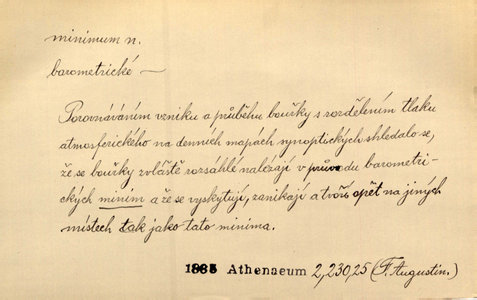 minimum n.
barometrické —
Porovnáváním vzniku a průběhu bouřky s rozdělením tlaku
atmosferického na denních mapách synoptických shledalo se,
že se bouřky zvláště rozsáhlé nalézají v průvodu barometri-
ckých minim a že se vyskytují, zanikají a tvoří opět na jiných
místech tak jako tato minima.
1885 Athenaeum 2,230,25 (F. Augustin.)